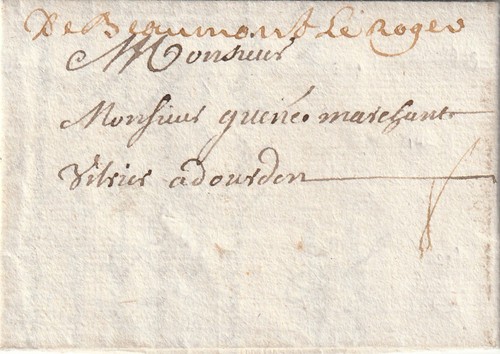 De Beaumont Le Roger
Monsieur
Monsieur guerié marchant
Vitrier a dourdon